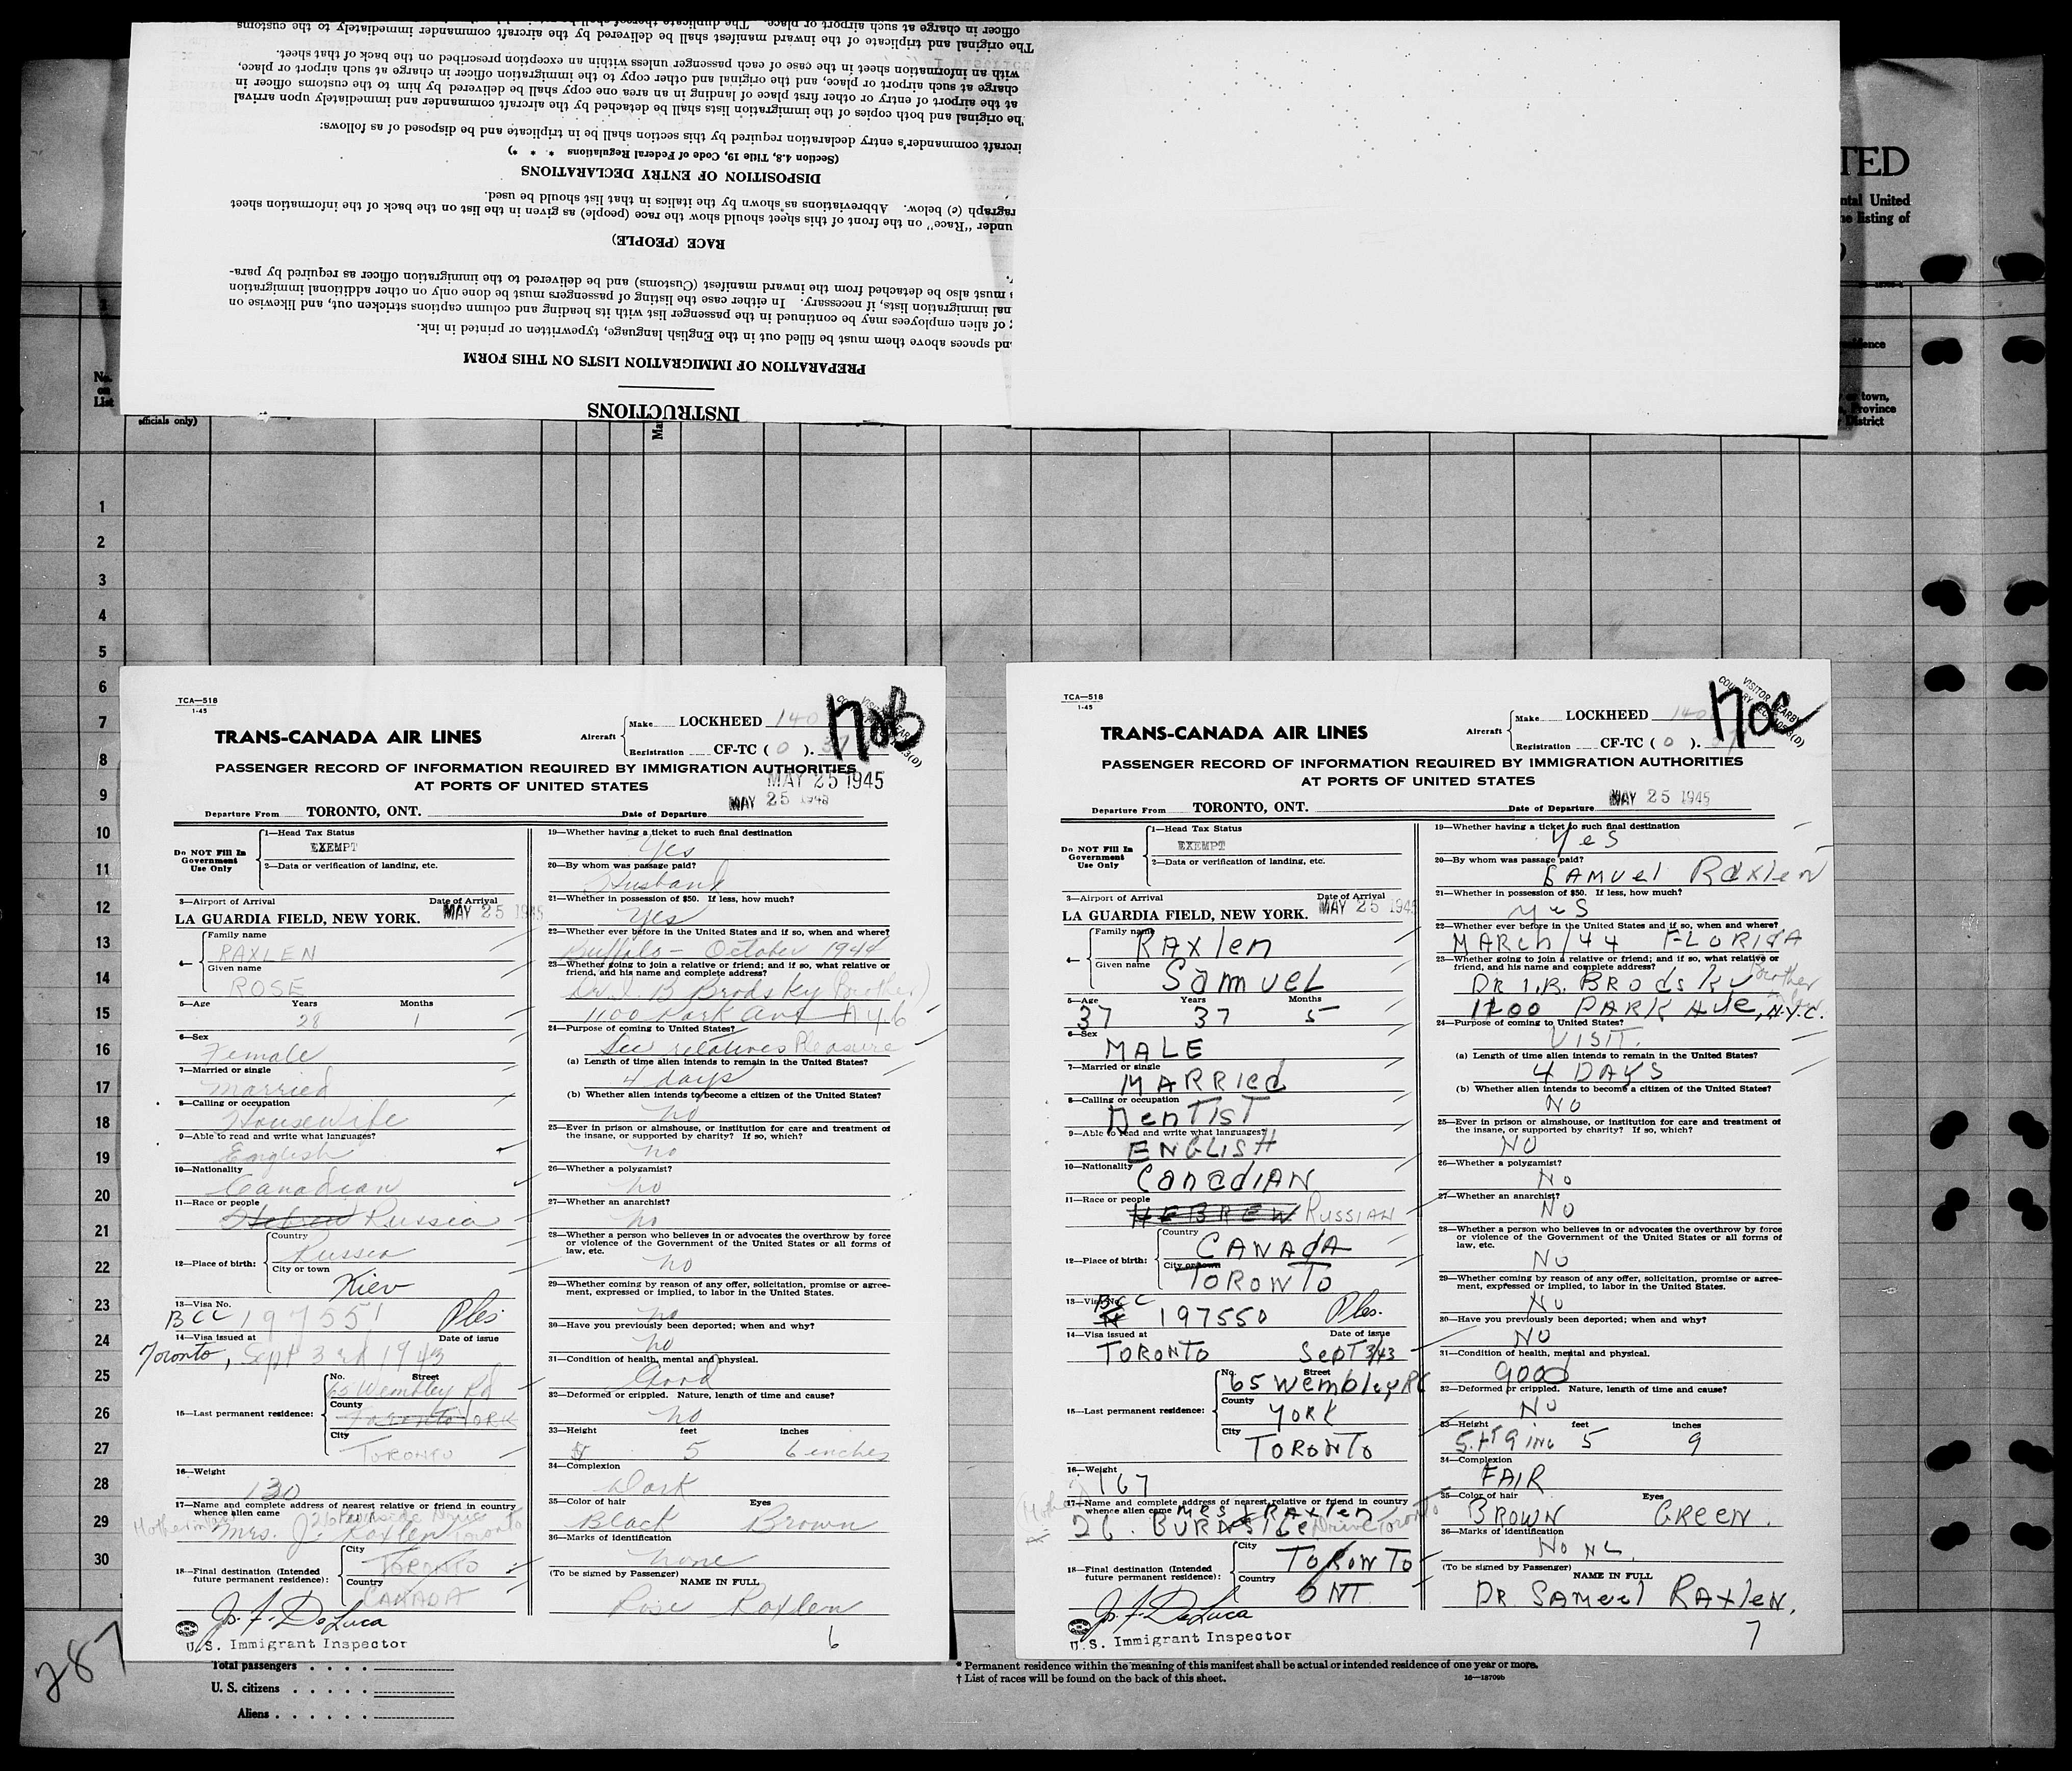 officer in charge at such airport or place. The duplicate thereof shall be
The original and triplicate of the inward manifest shall be delivered by the aircraft commander immediately to the customs
with an information sheet in the case of each passenger unless within an exception prescribed on the back of that sheet.
charge at such airport or place, and the original and other copy to the immigration officer in charge at such airport or place,
at the airport of entry or other first place of landing in an area one copy shall be delivered by him to the customs officer in
The original and both copies of the immigration lists shall be detached by the aircraft commander and immediately upon arrival
ircraft commander's entry declaration required by this section shall be in triplicate and be disposed of as follows:
(Section 4.8, Title 19, Code of Federal Regulations * * *)
DISPOSITION OF ENTRY DECLARATIONS
ragraph (c) below. Abbreviations as shown by the italics in that list should be used.
under "Race" on the front of this sheet should show the race (people) as given in the list on the back of the information sheet
RACE (PEOPLE)
s must also be detached from the inward manifest (Customs) and be delivered to the immigration officer as required by para-
nal immigration lists, if necessary. In either case the listing of passengers must be done only on other additional immigration
g of alien employees may be continued in the passenger list with its heading and column captions stricken out, and likewise on
and spaces above them must be filled out in the English language, typewritten or printed in ink.
PREPARATION OF IMMIGRATION LISTS ON THIS FORM
INSTRUCTIONS
TED
ntal United
he listing of
idence
or town,
Province
District
No.
on
List
officials only)
Ma
1
2
3
4
5
6
7
8
9
10
11
12
13
14
15
16
17
18
19
20
21
22
23
24
25
26
27
28
29
30
TCA—518
1-45
Aircraft
Make LOCKHEED 140
Registration CF-TC ( 0 ). 37
TRANS-CANADA AIR LINES
PASSENGER RECORD OF INFORMATION REQUIRED BY IMMIGRATION AUTHORITIES
AT PORTS OF UNITED STATES
MAY 25 1945
Departure From TORONTO, ONT. Date of Departure MAY 25 1945
Do NOT Fill In
Government
Use Only
1—Head Tax Status
EXEMPT
2—Data or verification of landing, etc.
3—Airport of Arrival Date of Arrival
LA GUARDIA FIELD, NEW YORK. MAY 25 1945
4— Family name
RAXLEN
Given name
ROSE
5—Age Years Months
28 1
6—Sex
Female
7—Married or single
Married
8—Calling or occupation
Housewife
9—Able to read and write what languages?
English
10—Nationality
Canadian
11—Race or people
Hebrew Russia
12—Place of birth:
Country
Russia
City or town
Kiev
13—Visa No.
BCC 197551
14—Visa issued at Date of issue
Toronto, Sept 3rd 1943
15—Last permanent residence:
No. Street
65 Wembley Rd
County
Toronto YORK
City
TORONTO
16—Weight
130
17—Name and complete address of nearest relative or friend in country
whence alien came
Mrs. J. Raxlen Toronto
18—Final destination (Intended
future permanent residence):
City
TORONTO
Country
CANADA
J. F. DeLuca
U.S. Immigrant Inspector
19—Whether having a ticket to such final destination
Yes
20—By whom was passage paid?
Husband
21—Whether in possession of $50. If less, how much?
Yes
22—Whether ever before in the United States and if so, when and where?
Buffalo - October 1944
23—Whether going to join a relative or friend; and if so, what relative or
friend, and his name and complete address?
Dr. I. B Brodsky (brother)
1100 Park Ave
24—Purpose of coming to United States?
See relatives Pleasure
(a) Length of time alien intends to remain in the United States?
4 days
(b) Whether alien intends to become a citizen of the United States?
no
25—Ever in prison or almshouse, or institution for care and treatment of
the insane, or supported by charity? If so, which?
no
26—Whether a polygamist?
no
27—Whether an anarchist?
no
28—Whether a person who believes in or advocates the overthrow by force
or violence of the Government of the United States or all forms of
law, etc.
no
29—Whether coming by reason of any offer, solicitation, promise or agree-
ment, expressed or implied, to labor in the United States.
no
30—Have you previously been deported; when and why?
no
31—Condition of health, mental and physical.
Good
32—Deformed or crippled. Nature, length of time and cause?
no
33—Height feet inches
5 6 inches
34—Complexion
Dark
35—Color of hair Eyes
Black Brown
36—Marks of identification
none
(To be signed by Passenger)
NAME IN FULL
Rose Raxlen
6
TCA—518
1-45
Aircraft
Make LOCKHEED 140
Registration CF-TC ( 0 ). 37
TRANS-CANADA AIR LINES
PASSENGER RECORD OF INFORMATION REQUIRED BY IMMIGRATION AUTHORITIES
AT PORTS OF UNITED STATES
Departure From TORONTO, ONT. Date of Departure MAY 25 1945
Do NOT Fill In
Government
Use Only
1—Head Tax Status
EXEMPT
2—Data or verification of landing, etc.
3—Airport of Arrival Date of Arrival
LA GUARDIA FIELD, NEW YORK. MAY 25 1945
4— Family name
RAxlen
Given name
SamueL
5—Age Years Months
37 37 5
6—Sex
MALE
7—Married or single
MARRIed
8—Calling or occupation
DenTIST
9—Able to read and write what languages?
ENGLISH
10—Nationality
CanadIAN
11—Race or people
HEBREW RUSSIAN
12—Place of birth:
Country
CANAdA
City or town
TORONTO
13—Visa No.
BCC 197550
14—Visa issued at Date of issue
TORONTO SepT 3/43
15—Last permanent residence:
No. Street
65 Wembley Rd
County
YORK
City
TORONTO
16—Weight
167
17—Name and complete address of nearest relative or friend in country
whence alien came MRS J RAxlen
26. BURNSIde Drive Toronto
18—Final destination (Intended
future permanent residence):
City
TORONTO
Country
ONT.
J. F. DeLuca
U.S. Immigrant Inspector
19—Whether having a ticket to such final destination
YeS
20—By whom was passage paid?
SAMuel Raxlen
21—Whether in possession of $50. If less, how much?
yeS
22—Whether ever before in the United States and if so, when and where?
MARCh/44 FLORIdA
23—Whether going to join a relative or friend; and if so, what relative or
friend, and his name and complete address?
DR I.B. BROdsky Brother in law
1100 PARK AVe, N.Y.C.
24—Purpose of coming to United States?
VISIT.
(a) Length of time alien intends to remain in the United States?
4 DAYS
(b) Whether alien intends to become a citizen of the United States?
NO
25—Ever in prison or almshouse, or institution for care and treatment of
the insane, or supported by charity? If so, which?
NO
26—Whether a polygamist?
No
27—Whether an anarchist?
NO
28—Whether a person who believes in or advocates the overthrow by force
or violence of the Government of the United States or all forms of
law, etc.
NO
29—Whether coming by reason of any offer, solicitation, promise or agree-
ment, expressed or implied, to labor in the United States.
No
30—Have you previously been deported; when and why?
NO
31—Condition of health, mental and physical.
good
32—Deformed or crippled. Nature, length of time and cause?
No
33—Height feet inches
5 9
34—Complexion
FAIR
35—Color of hair Eyes
BROWN GREEN.
36—Marks of identification
NONE.
(To be signed by Passenger)
NAME IN FULL
DR. SAMuel RAxleN.
7
287
Total passengers . . . .
U. S. citizens . . . . .
Aliens . . . . . .
* Permanent residence within the meaning of this manifest shall be actual or intended residence of one year or more.
† List of races will be found on the back of this sheet.
16—18709b